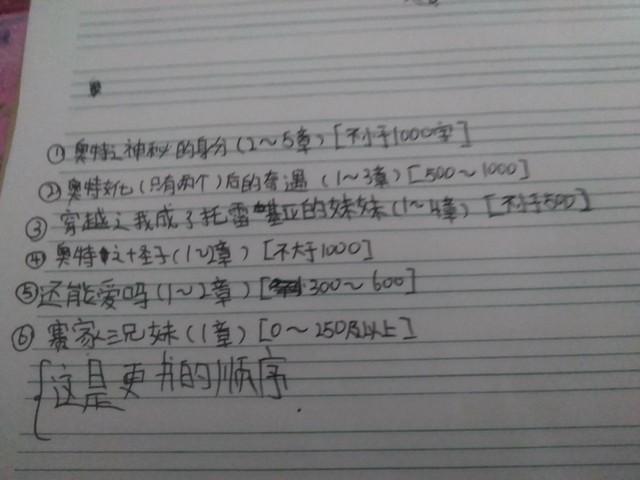 ①奥特之神秘的身份(2～5章)[不小于1000字]
②奥特文化(只有两个)后的奇遇(1～3章)[500～1000]
③穿越之我成了托雷基亚的妹妹(1～4章)[不小于500]
④奥特之十圣子(1～2章)[不大于1000]
⑤还能爱吗(1～2章)[300～600]
⑥赛家三兄妹(1章)[0～250及以上]
{这是更书的顺序.